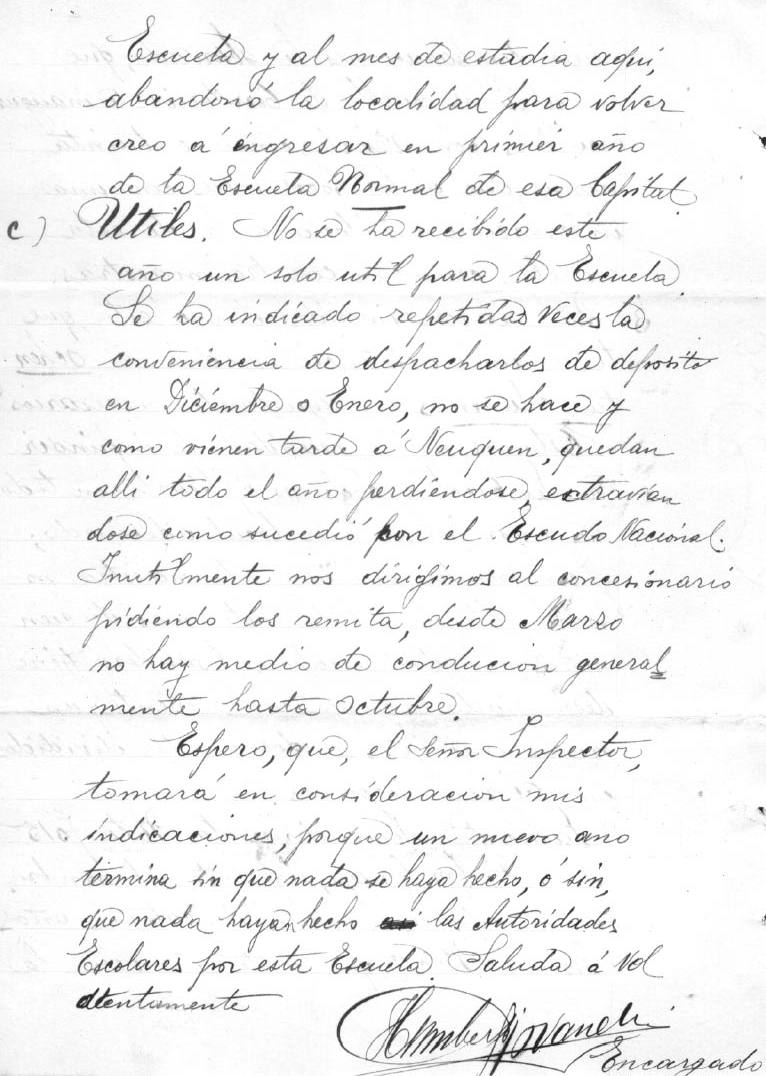 Escuela y al mes de estadia aqui,
abandonó la localidad para volver
creo á ingresar en primer año
de la Escuela Normal de esa Capital.
c) Utiles. No se ha recibido este
año un solo util para la Escuela.
Se ha indicado repetidas veces la
conveniencia de despacharlos de deposito
en Diciembre o Enero, no se hace y
como vienen tarde á Neuquen, quedan
alli todo el año perdiéndose, extravian
dose como sucedió con el Escudo Nacional.
Inutilmente nos dirigimos al concesionario
pidiendo los remita, desde Marzo
no hay medio de conducion general
mente hasta Octubre.
Espero, que, el Señor Inspector,
tomará en consideracion mis
indicaciones, porque un nuevo ano
termina sin que nada se haya hecho, ó sin,
que nada hayan hecho las Autoridades
Escolares por esta Escuela. Saluda á Vd
atentamente
Encargado